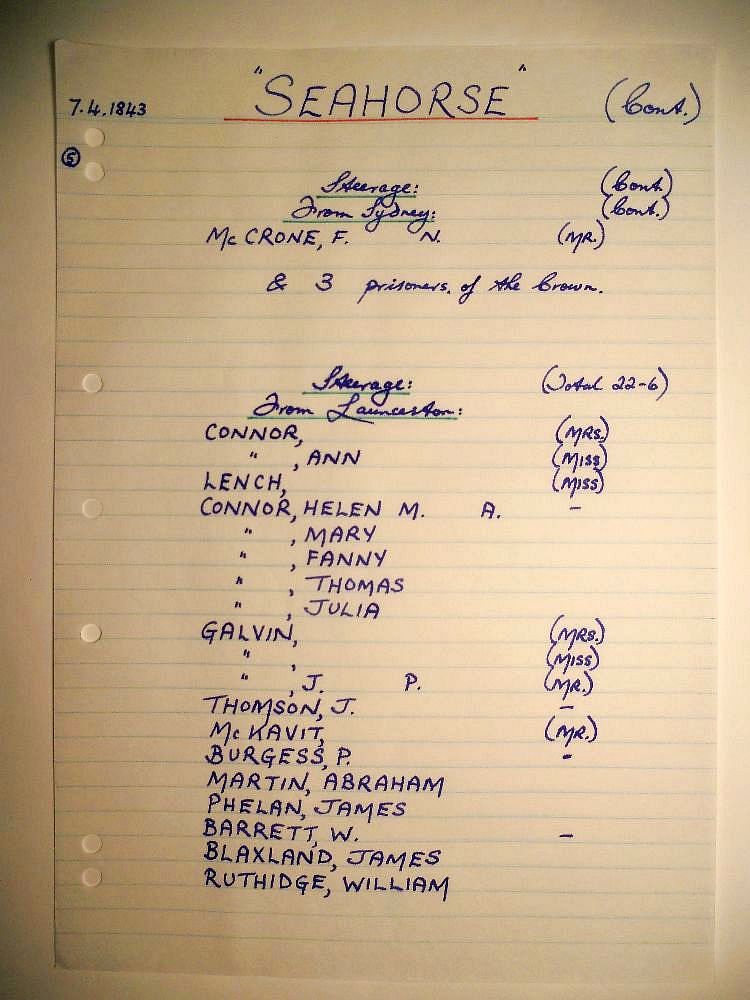 7.4.1843 "SEAHORSE" (Cont.)
5
Steerage: (Cont.)
From Sydney: (Cont.)
Mc CRONE, F. N. (MR.)
& 3 prisoners. of the Crown.
Steerage: (Total 22-6)
From Launceston:
CONNOR, (MRS.)
" , ANN (MISS)
LENCH, (MISS)
CONNOR, HELEN M. A. -
" , MARY
" , FANNY
" , THOMAS
" , JULIA
GALVIN, (MRS.)
" , (MISS)
" , J. P. (MR.)
THOMSON, J. -
Mc KAVIT, (MR.)
BURGESS, P. -
MARTIN, ABRAHAM
PHELAN, JAMES
BARRETT, W. -
BLAXLAND, JAMES
RUTHIDGE, WILLIAM